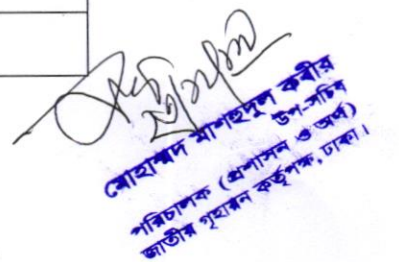 মোহাম্মদ মাশহুদুল কবীর
উপ-সচিব
পরিচালক (প্রশাসন ও অর্থ)
জাতীয় গৃহায়ন কর্তৃপক্ষ, ঢাকা।